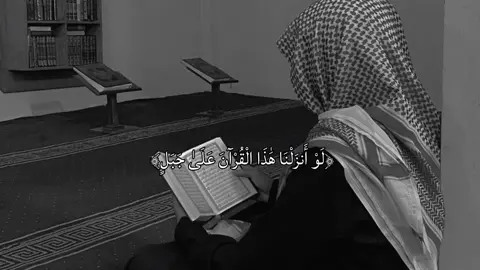 ﴿لَوْ أَنزَلْنَا هَٰذَا الْقُرْآنَ عَلَىٰ جَبَلٍ﴾